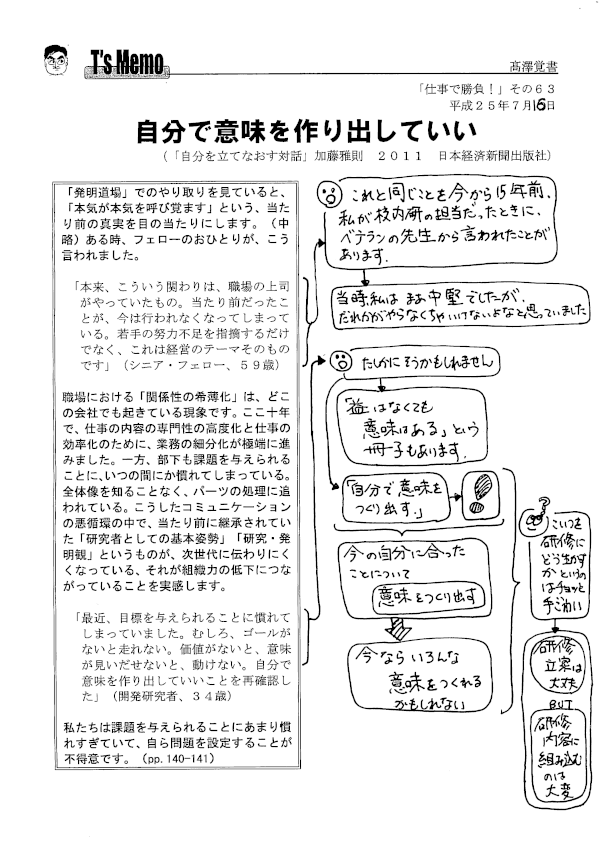 T's Memo
髙澤覚書
「仕事で勝負!」その63
平成25年7月16日
自分で意味を作り出していい
(「自分を立てなおす対話」加藤雅則 2011 日本経済新聞出版社)
「発明道場」でのやり取りを見ていると、
「本気が本気を呼び覚ます」という、当た
り前の真実を目の当たりにします。(中
略)ある時、フェローのおひとりが、こう
言われました。
「本来、こういう関わりは、職場の上司
がやっていたもの。当たり前だったこ
とが、今は行われなくなってしまって
いる。若手の努力不足を指摘するだけ
でなく、これは経営のテーマそのもの
です」(シニア・フェロー、59歳)
職場における「関係性の希薄化」は、どこ
の会社でも起きている現象です。ここ十年
で、仕事の内容の専門性の高度化と仕事の
効率化のために、業務の細分化が極端に進
みました。一方、部下も課題を与えられる
ことに、いつの間にか慣れてしまっている。
全体像を知ることなく、パーツの処理に追
われている。こうしたコミュニケーション
の悪循環の中で、当たり前に継承されてい
た「研究者としての基本姿勢」「研究・発
明観」というものが、次世代に伝わりにく
くなっている、それが組織力の低下につな
がっていることを実感します。
「最近、目標を与えられることに慣れて
しまっていました。むしろ、ゴールが
ないと走れない。価値がないと、意味
が見いだせないと、動けない。自分で
意味を作り出していいことを再確認し
た」(開発研究者、34歳)
私たちは課題を与えられることにあまり慣
れすぎていて、自ら問題を設定することが
不得意です。(pp.140-141)
これと同じことを今から15年前、
私が校内研の担当だったときに、
ベテランの先生から言われたことが
あります。
当時、私は まあ中堅でしたが、
だれかがやらなくちゃいけないよなと思っていました
たしかにそうかもしれません
「益はなくても
意味はある」という
冊子もあります。
「自分で意味を
つくり出す。」
!
今の自分に合った
ことについて
意味をつくり出す
今ならいろんな
意味をつくれる
かもしれない
?
こいつを
研修に
どう生かす
かというの
はチョッと
手ごわい
研修
立案は
大丈夫
BUT
研修
内容に
組み込む
のは
大変